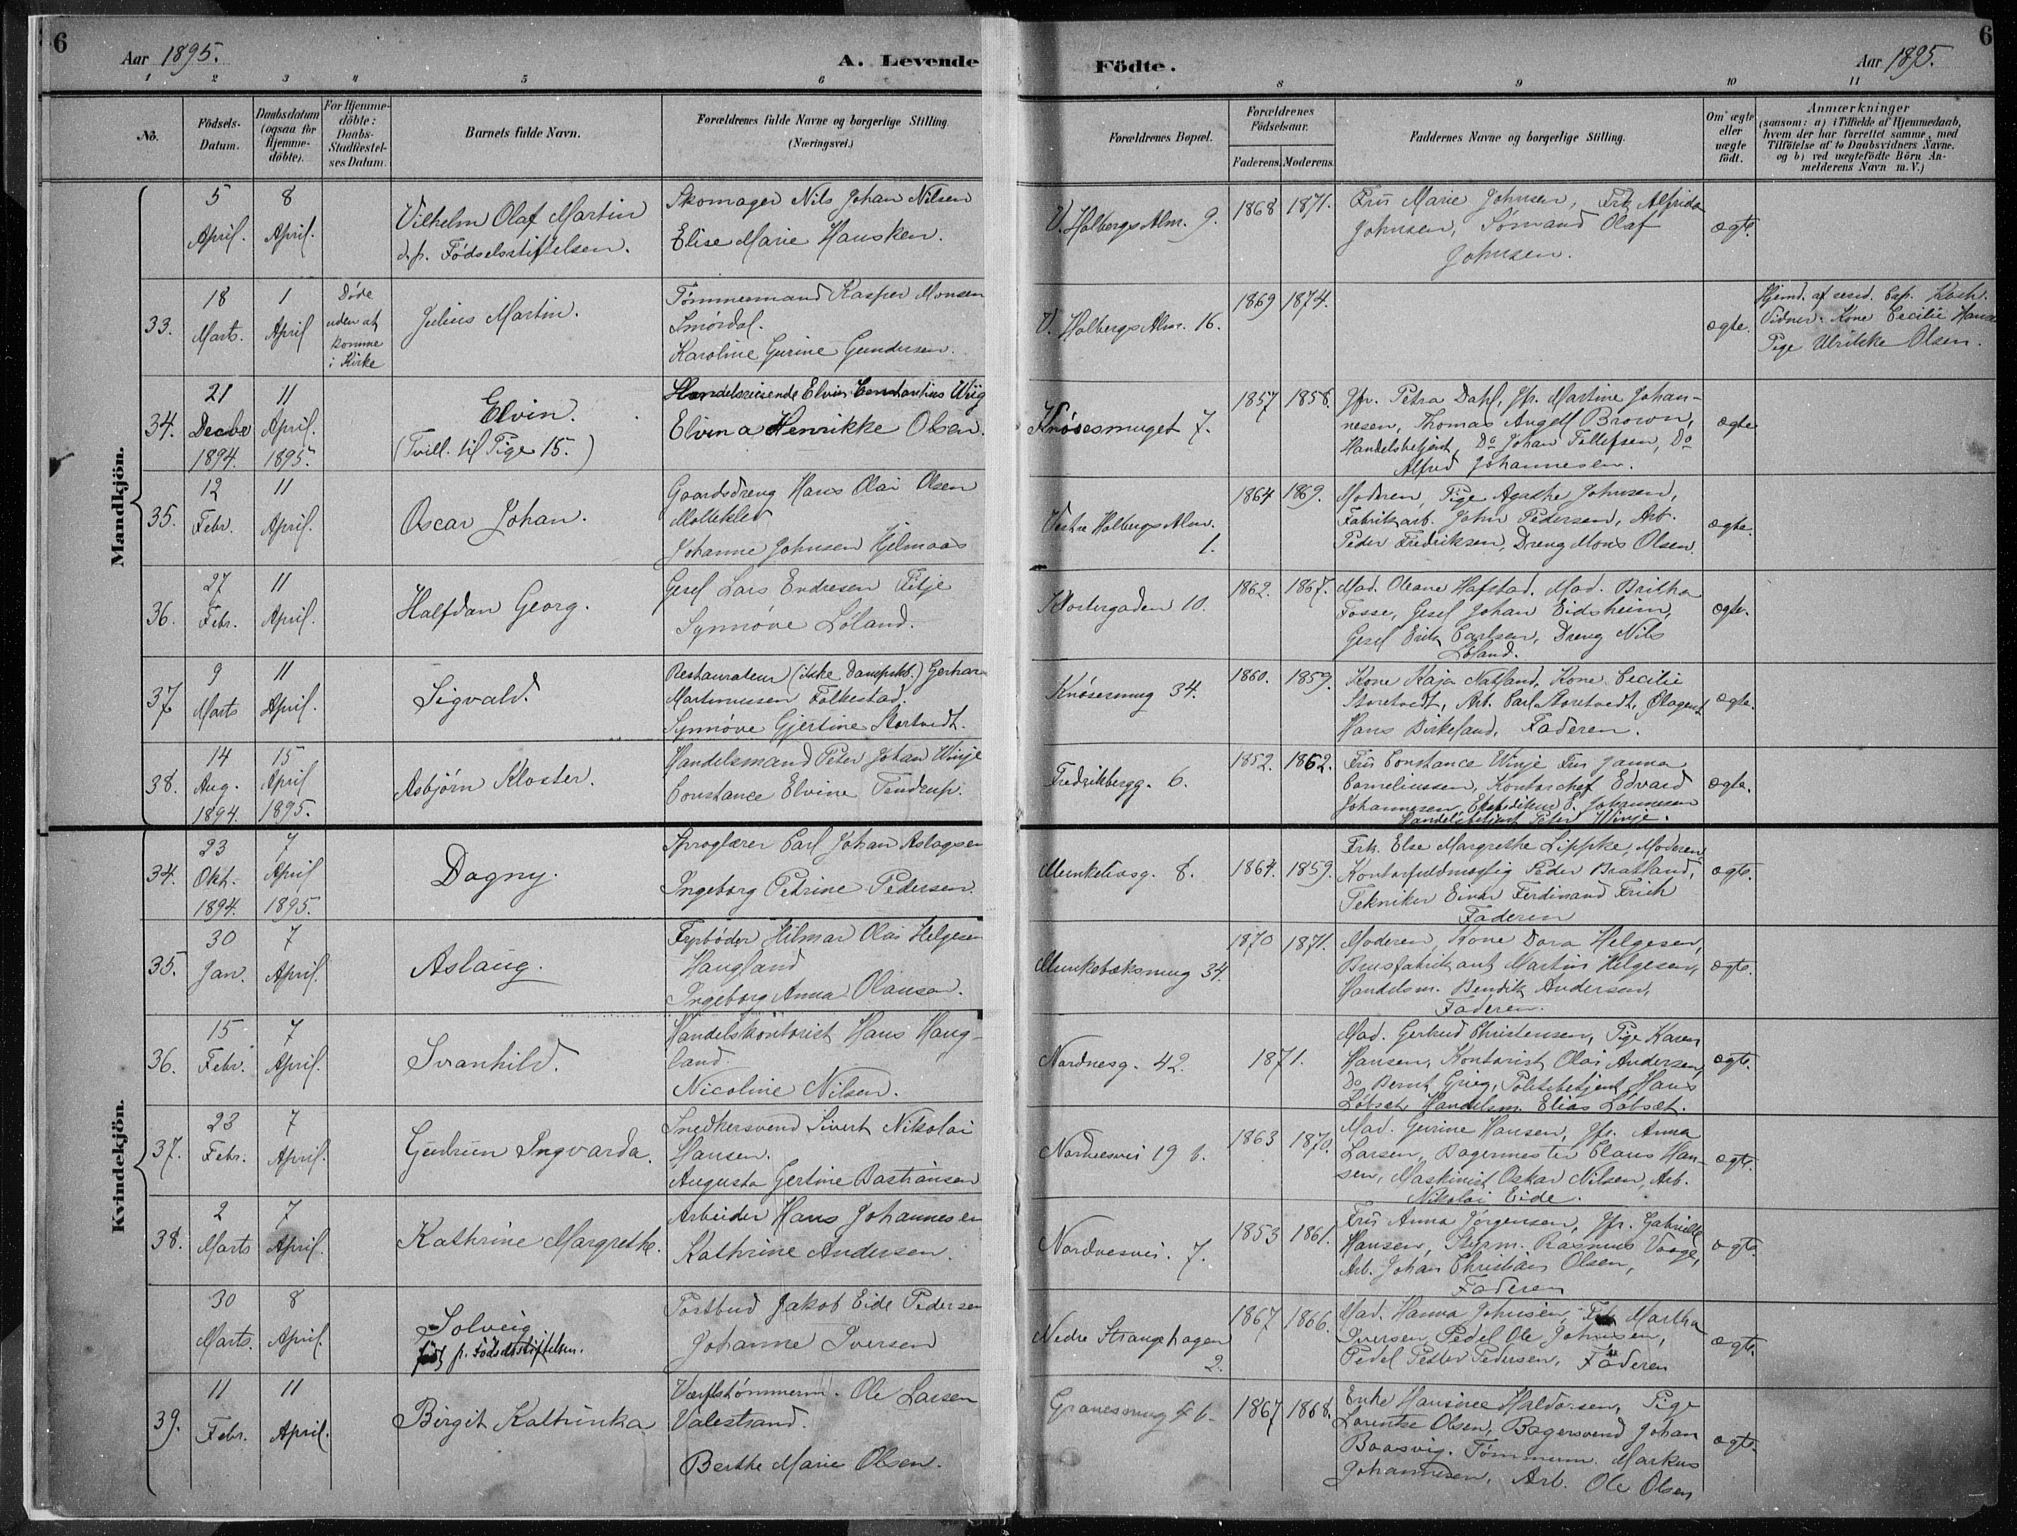 6
Aar 1895.
A. Levende
Födte.
Aar 1895.
6
1 2 3 4 5 6
8 9 10 11
No.
Födsels-
Datum.
Daabsdatum
(ogsaa for
Hjemme-
döbte).
For Hjemme-
döbte:
Daabs-
Stadfæstel-
ses Datum.
Barnets fulde Navn.
Forældrenes fulde Navne og borgerlige Stilling
(Næringsvei.)
Forældrenes Bopæl.
Forældrenes
Födselsaar.
Faderens. Moderens.
Faddernes Navne og borgerlige Stilling.
Om ægte
eller
uægte
födt.
Anmærkninger
(saasom: a) i Tilfælde af Hjemmedaab,
hvem der har forrettet samme, med
Tilföielse af to Daabsvidners Navne.
og b) ved uægtefödte Börn An-
melderens Navn m. V.)
Mandkjön.
5
April.
8
April.
Vilhelm Olaf Martin
d.p. Fødselsstiftelsen.
Skomager Nils Johan Nilsen
Elise Marie Hausken.
V. Holbergs Alm. 9.
1868 1871.
Fru Marie Johnsen, Frk Alfrida
Johnsen, Sømand Olaf
Johnsen.
ægte.
33.
18
Marts.
1
April
Døde
uden at
komme
i Kirke
Julius Martin.
Tømmermand Kasper Monsen
Smørdal.
Karoline Gurine Gundersen.
V. Holbergs Alm. 16.
1869 1874.
ægte.
Hjemd. af resd. Cap. Koch.
Vidner. Kone Cecilie
Pige Ulrikke Olsen.
34.
21
Decbr
1894.
11
April.
1895.
Elvin.
(Tvill. til Pige 15.)
Handelsreisende Elvin Constantius Wiig
Elvina Henrikke Olsen.
Knøsesmuget 7.
1857 1858.
Jfr. Petra Dahl, Jfr. Martine Johan-
nesen, Thomas Angell Brown,
Handelsbetjent, Do Johan Tollefsen, Do
Alfred Johannesen.
ægte
35.
12
Febr.
11
April.
Oscar Johan.
Gaardsdreng Hans Olai Olsen
Molleklev
Johanne Johnsen Hjelmaas
Vestre Holbergs Alm.
1.
1864 1869.
Moderen, Pige Agathe Johnsen,
Fabrikarb. John Pedersen, Arb.
Peder Fredriksen, Dreng Mons Olsen.
ægte.
36.
27
Febr.
11
April.
Halfdan Georg.
Gesel Lars Endresen Titje
Synnøve Løland.
Klostergaden 10.
1862. 1867.
Mad. Oleane Hafstad, Mad. Britha
Fosse, Gesel Johan Eidsheim,
Gesel Erik Carlsen, Dreng Nils
Løland.
ægte.
37
9
Marts
11
April.
Sigvald.
Restauratør (ikke Dampskb.) Gerhar
Martinussen Folkestad.
Synnøve Gjertine Stortvedt.
Knøsesmug 34.
1860. 1859.
Kone Kaja Natland, Kone Cecilie
Storetvedt, Arb. Carl Storetvedt, Ølagent
Hans Birkeland, Faderen.
ægte.
38.
14
Aug.
1894.
15
April
1895.
Asbjørn Kloster.
Handelsmand Peter Johan Winje
Constance Elvine Tendrup.
Fredrikbergg. 6.
1852. 1862.
Fru Constance Winje Fru Janna
Corneliussen, Kontorchef Edvard
Johannesen, Expeditør E. Johannesen
Handelsbetjent Peter Winje.
ægte.
Kvindekjön.
34.
23
Okt.
1894.
7
April
1895.
Dagny.
Sproglærer Carl Johan Aslagsen
Ingeborg Petrine Pedersen.
Munkelivsg. 8.
1864. 1859.
Frk. Else Margrethe Lippke, Moderen
Kontorfuldmægtig Peder Bratland,
Tekniker Einar Ferdinand Erich
Faderen
ægte.
35.
30
Jan.
7
April.
Aslaug.
Fyrbøder Hilmar Olai Helgesen
Haugland
Ingeborg Anna Olausen.
Munkebæksmug 34.
1870 1871.
Moderen, Kone Dora Helgesen,
Brusfabrikant Martin Helgesen,
Handelsm. Bendik Andersen,
Faderen.
ægte.
36.
15
Febr.
7
April.
Svanhild.
Handelskontorist Hans Haug-
land.
Nicoline Nilsen.
Nordnesg. 42.
1871.
Mad. Gertrud Christensen, Pige Karen
Hansen, Kontorist Olai Andersen,
Do Bernt Grieg, Politibetjent Hans
Løbset, Handelsm. Elias Løbset.
ægte.
37.
23
Febr.
7
April.
Gudrun Ingvarda.
Snedkersvend Sivert Nikolai
Hansen.
Augusta Gertine Bastiansen
Nordnesvei 19 b.
1863 1870.
Mad. Gurine Hansen, Jfr. Anna
Larsen, Bagermester Claus Han-
sen, Maskinist Oskar Nilsen, Arb.
Nikolai Eide.
ægte.
38.
2
Marts
7
April.
Kathrine Margrethe.
Arbeider Hans Johannesen
Kathrine Andersen.
Nordnesvei. 7.
1853 1861.
Fru Anna Jørgensen, Jfr. Gabrielle
Hansen, Styrm. Rasmus Vaage,
Arb. Johan Christian Olsen,
Faderen
ægte.
30
Marts.
8
April.
Solveig
født p. Fødselsstiftelsen.
Postbud Jakob Eide Pedersen
Johanne Iversen
Nedre Strangehagen
2.
1867 1866.
Mad. Hanna Johnsen, Frk Martha
Iversen, Pedel Ole Johnsen,
Pedel Peder Pedersen, Faderen
ægte.
39.
11
Febr.
11
April.
Birgit Kathinka
Værftstømmerm. Ole Larsen
Valestrand.
Berthe Marie Olsen.
Granesmug
1867 1868.
Enke Hansine Haldorsen, Pige
Lorentze Olsen, Bagersvend Johan
Baasvig, Tømmerm. Markus
Johannesen, Arb. Ole Olsen
ægte.